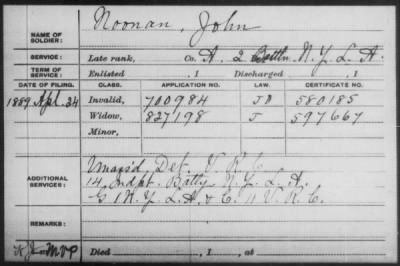 Noonan, John
NAME OF
SOLDIER:
SERVICE: Late rank, Co. A. 2 Battn. N.Y.L.A.
TERM OF
SERVICE: Enlisted , 1 Discharged , 1
DATE OF FILING. CLASS. APPLICATION NO. LAW. CERTIFICATE NO.
1889 Apl. 24 Invalid, 700984 580185
Widow, 827198 J 597667
Minor,
Unass'd Det. V.R.C.
ADDITIONAL
SERVICES: 14. Indpt. Batty N.Y.L.A.
G 1 N.Y.L.A. & C. 11 V.R.C.
REMARKS:
Died , 1 , at